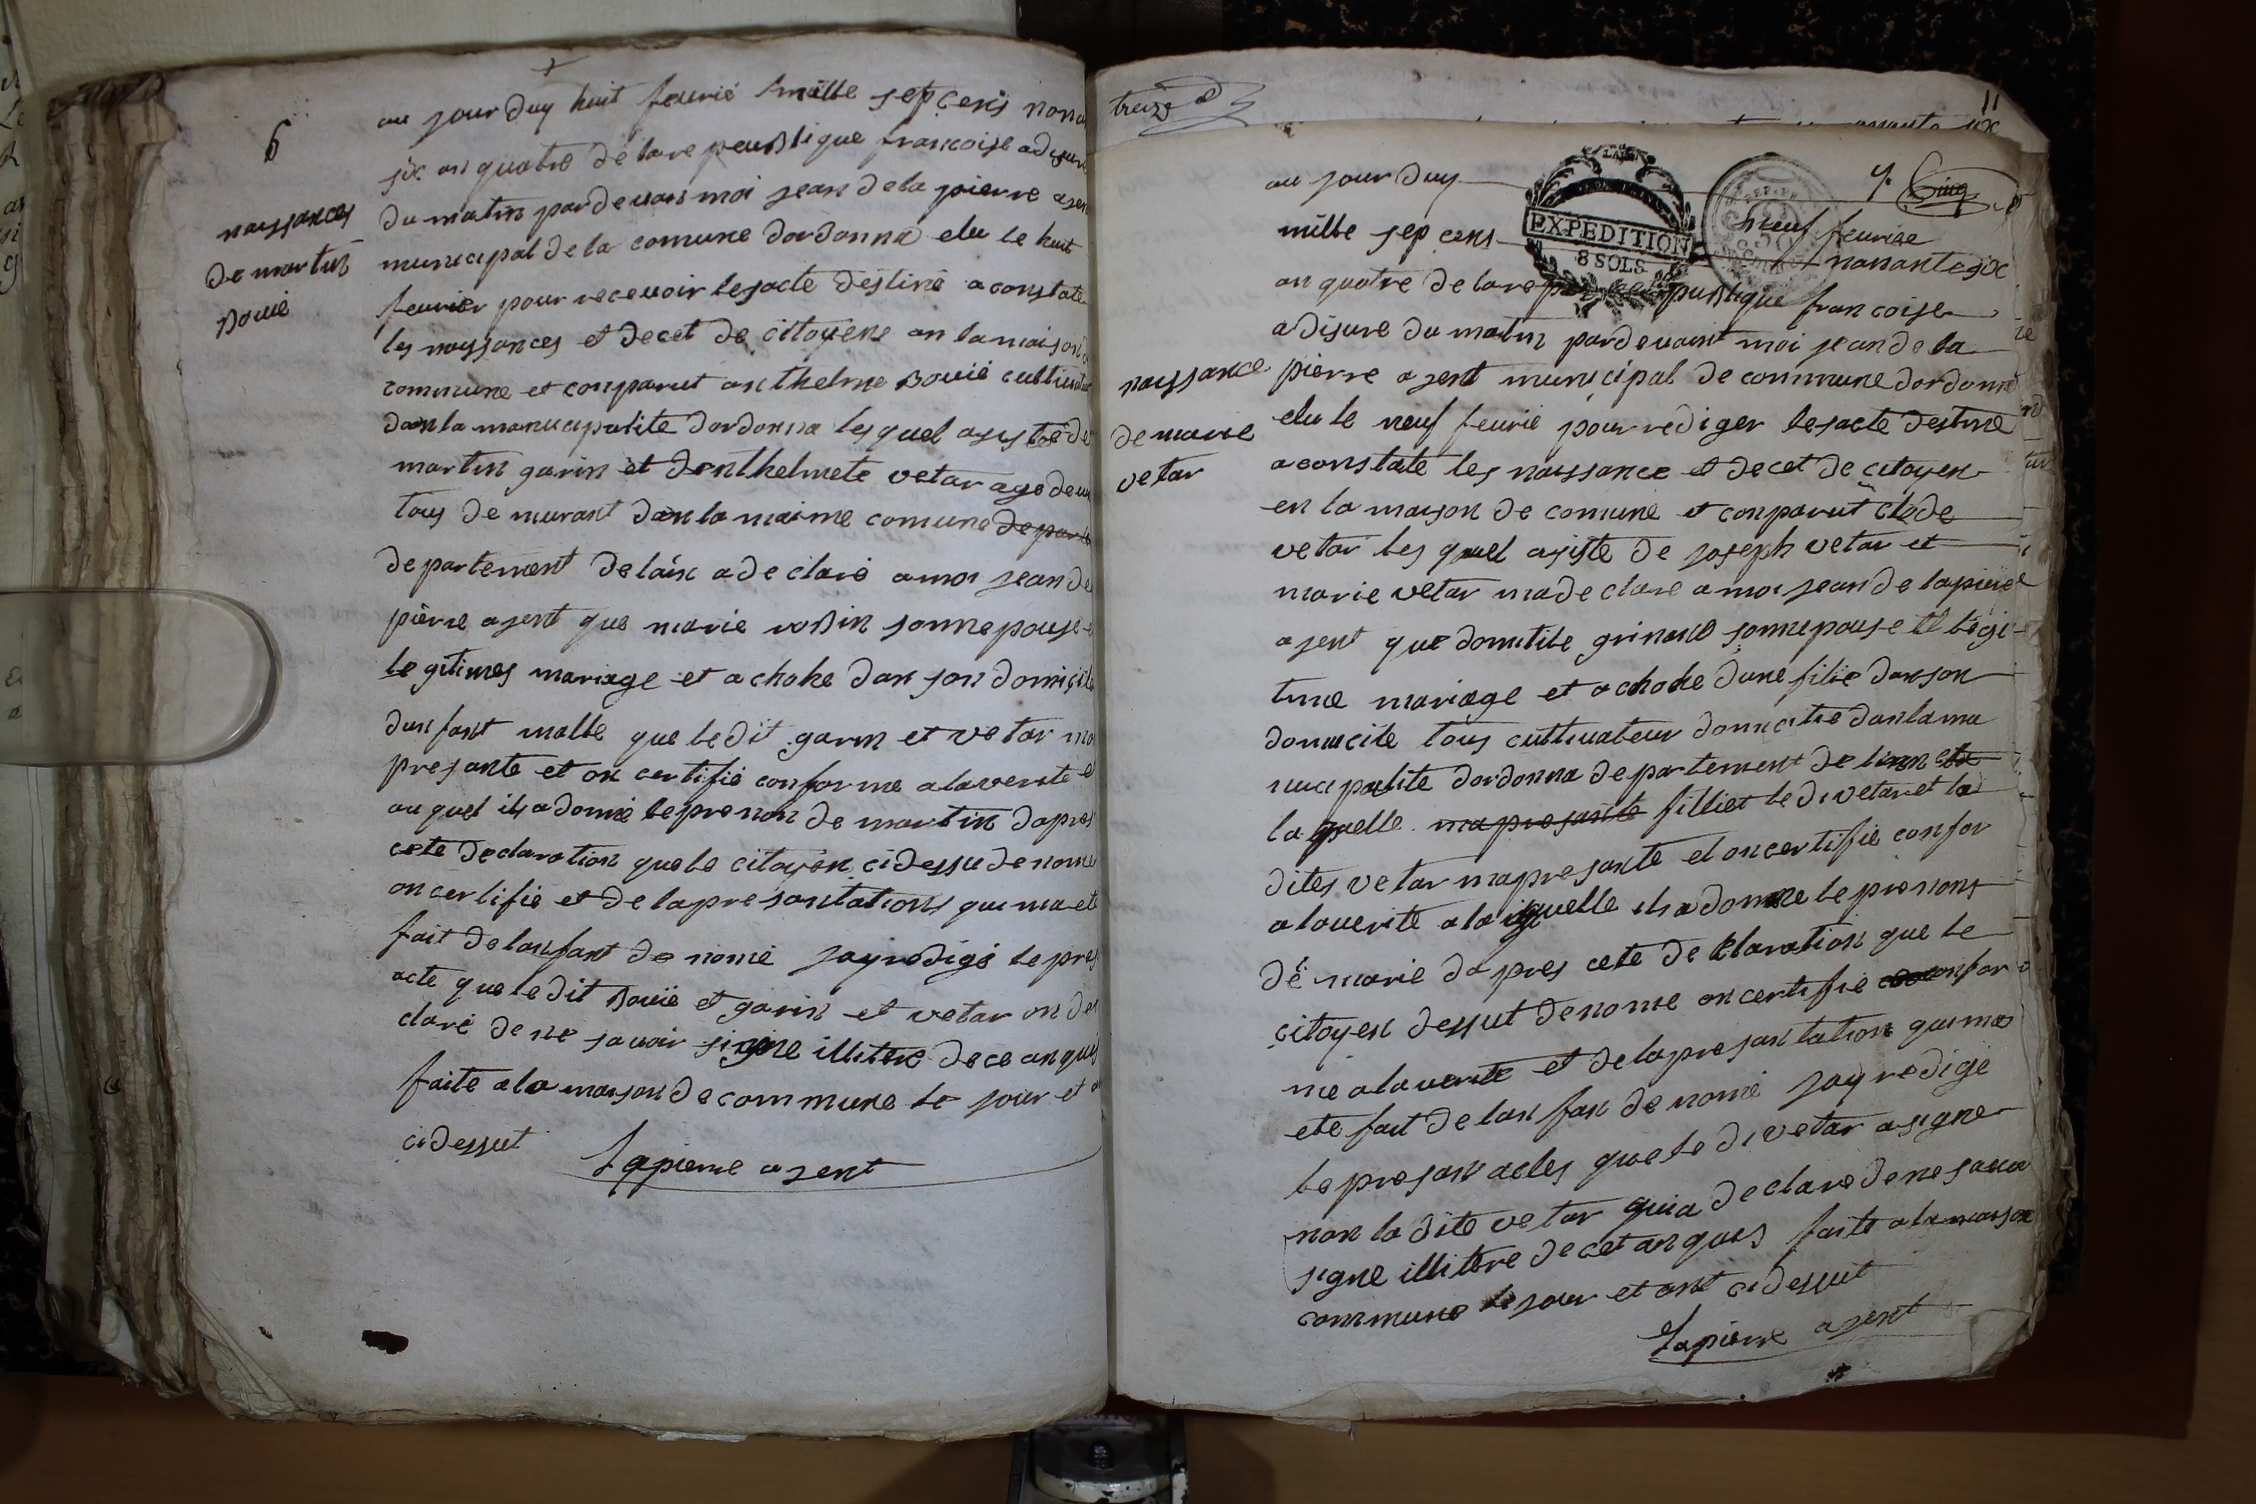 6
naissances
de martin
Bouié
au jour duy huit feurié mille sepcens nona
six an quatre de lare peublique francoise a disure
du matin pardeuan moi jean de la pierre ajen
municipal de la comune dordonna elu le huit
feurier pour receuoir lesacte destiné a constate
les naissances et decet de citoyens an la maison
commune et conparut anthelme Bouié cultiuateur
dan la manucipalite dordonna lesquel asisté de
martin garin et denthelmete vetar age de
tous de murant dan la maime comune
departement de lain a declaré a moi jean de
pierre ajent que marie roBin sonnepouse
legitimes mariage et achohe dan son domicile
dunfant malle que ledit garin et vetar ma
presante et on certifié conforme a laverité e
auquel ils a donné le prenon de martin dapres
cete declaration que le citoyen ci dessu denomé
on certifié et de lapresantations qui ma ete
fait de lanfant denomé jay redigé le pres
acte que ledit Bouié et garin et vetar on de
claré de ne sauoir signe illitere de ce anquis
faite a la maison de commune le jour et
ci dessut
Lapierre ajent
treize
11
six
naissance
de marie
vetar
EXPEDITION
8 SOLS
au jour duy
neuf feuriee
mille sep cens
nonante six
an quatre de lare publique francoise
a disure du matin pardeuant moi jean de la
pierre ajent municipal de commune dordonna
elu le neuf feurié pour rediger lesacte destine
a constate les naissance et decet de citoyen
en la maison de comune et conparut clode
vetar lesquel asiste de joseph vetar et
marie vetar ma declare a moi jean de lapierre
ajent que domitile grinand sonnepouse et legi
time mariage et achohe dune filie dan son
domicile tous cultiuateur domicilié dan la ma
nucipalite dordonna departement de linn
laquelle ma presante filliet le di vetar et la
dites vetar mapresante et on certifié confor
a lauerite a laquelle ils a donne le prenons
de marie dapres cete declaration que le
citoyen dessut denome on certifie confor
mé a la uerite et de lapresantation qui ma
ete fait de lanfan denomé jay redigé
le presant actes que le di vetar a signe
non la dite vetar qui a declare de ne sauoi
signe illitere de cet anquis faite a la maison
commune le jour et ant ci dessut
Lapierre ajent